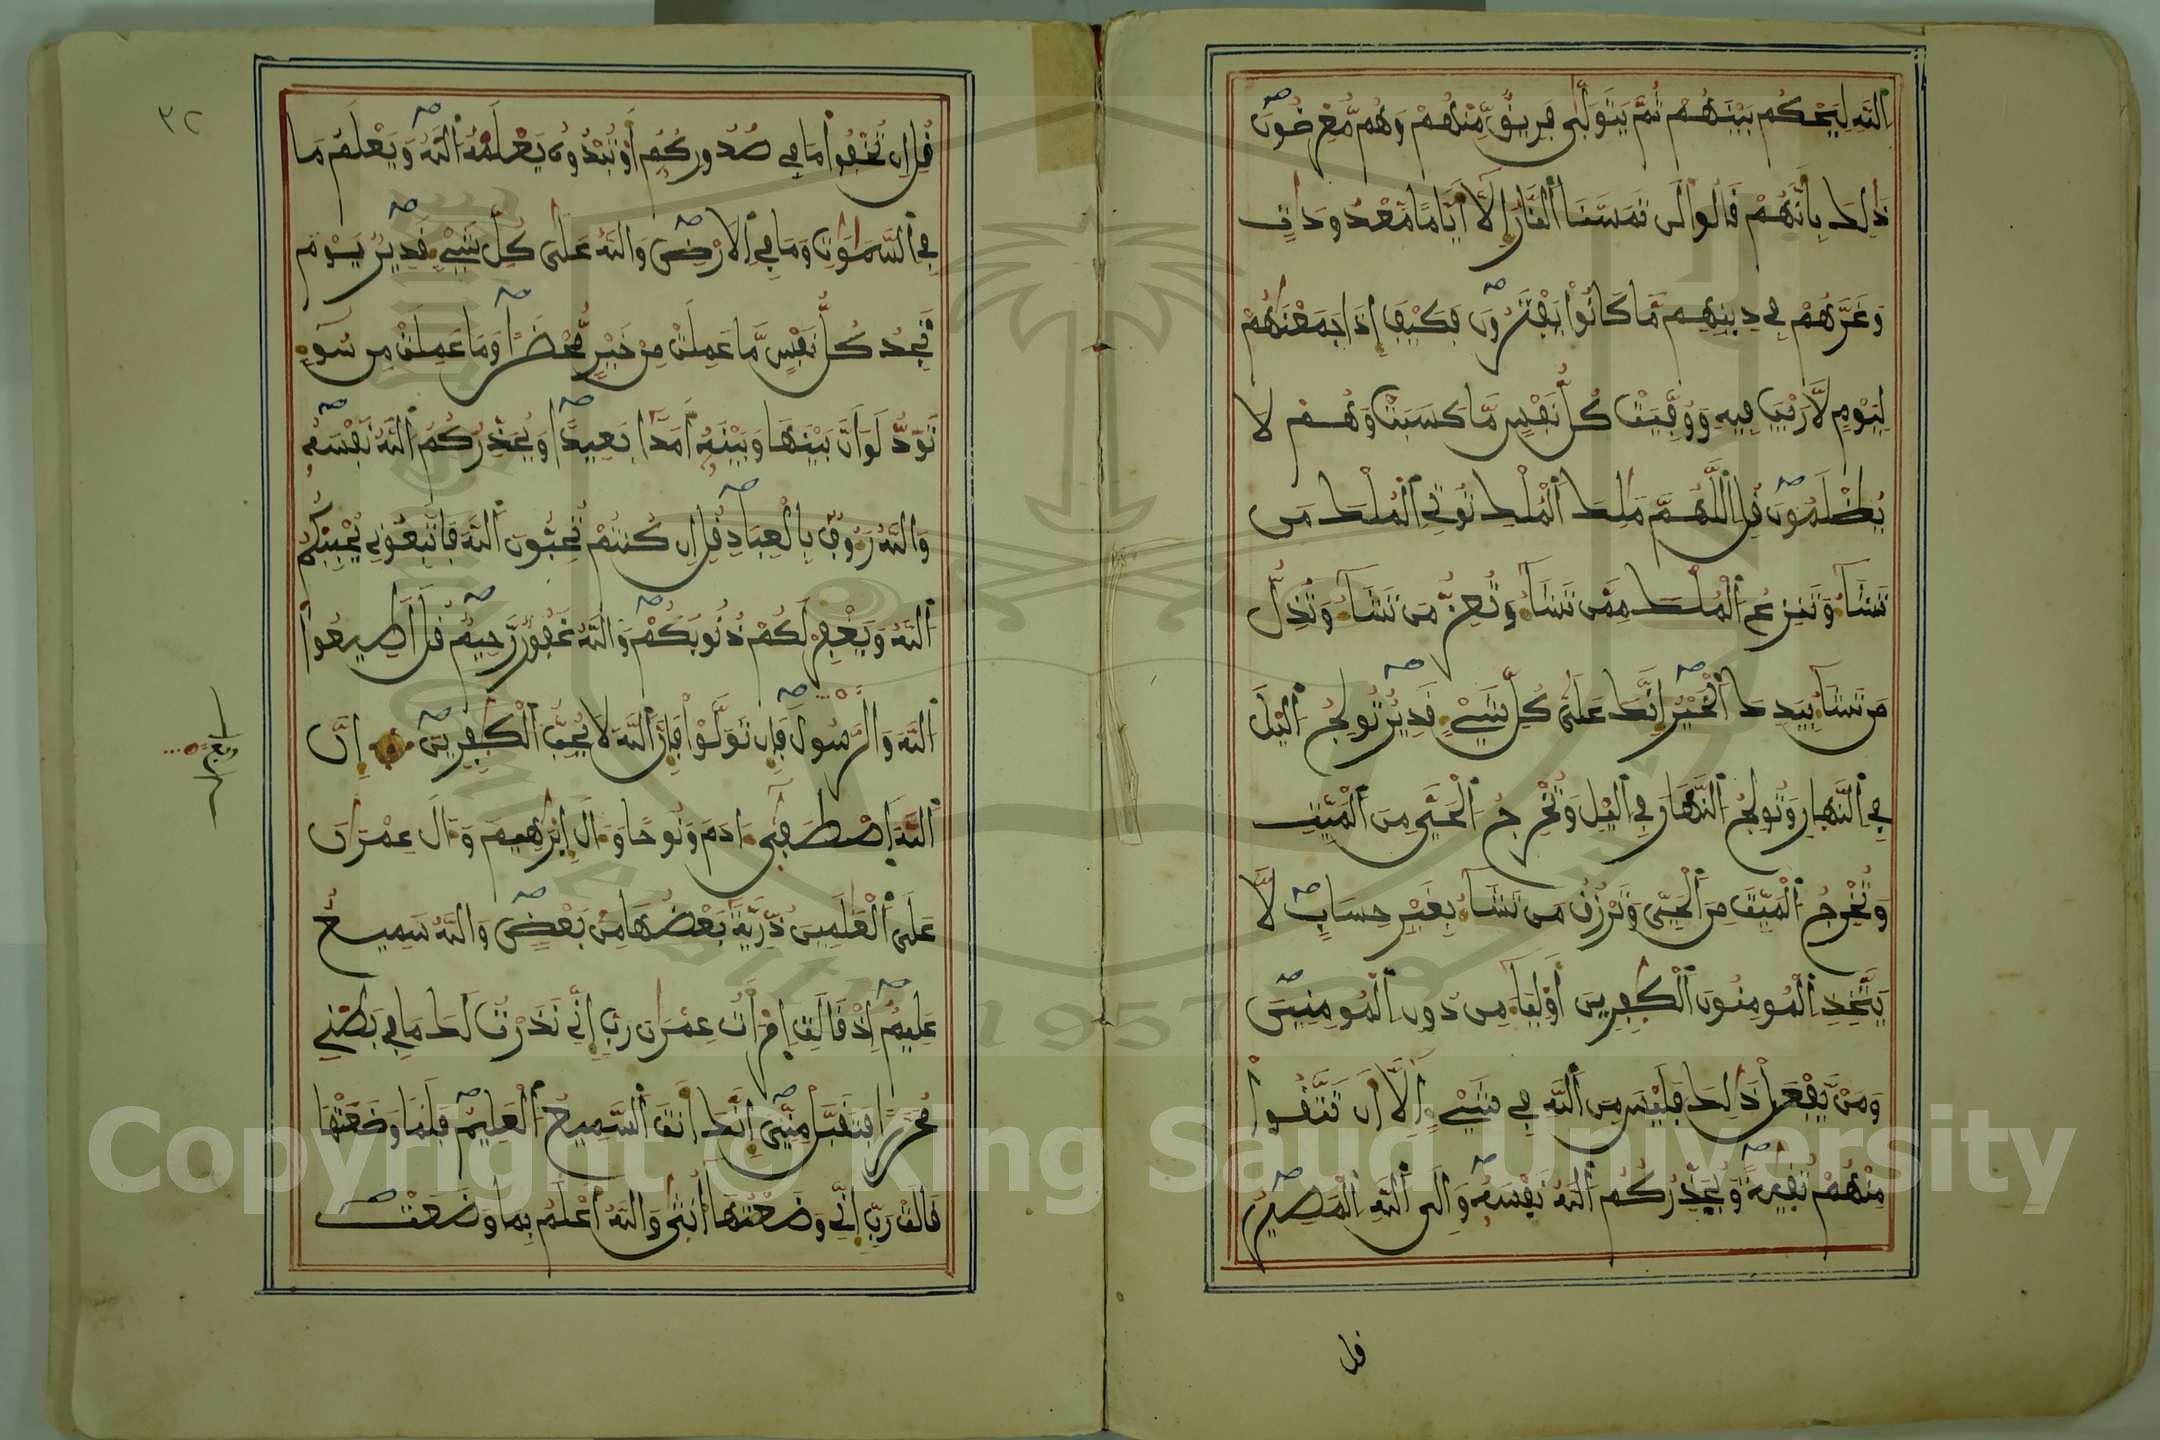 اللَّهِ لِيَحْكُمَ بَيْنَهُمْ ثُمَّ يَتَوَلَّىٰ فَرِيقٌ مِّنْهُمْ وَهُم مُّعْرِضُونَ
ذَٰلِكَ بِأَنَّهُمْ قَالُوا لَن تَمَسَّنَا النَّارُ إِلَّا أَيَّامًا مَّعْدُودَاتٍ
وَغَرَّهُمْ فِي دِينِهِم مَّا كَانُوا يَفْتَرُونَ فَكَيْفَ إِذَا جَمَعْنَٰهُمْ
لِيَوْمٍ لَّا رَيْبَ فِيهِ وَوُفِّيَتْ كُلُّ نَفْسٍ مَّا كَسَبَتْ وَهُمْ لَا
يُظْلَمُونَ قُلِ اللَّهُمَّ مَٰلِكَ الْمُلْكِ تُوتِي الْمُلْكَ مَن
تَشَآءُ وَتَنزِعُ الْمُلْكَ مِمَّن تَشَآءُ وَتُعِزُّ مَن تَشَآءُ وَتُذِلُّ
مَن تَشَآءُ بِيَدِكَ الْخَيْرُ إِنَّكَ عَلَىٰ كُلِّ شَيْءٍ قَدِيرٌ تُولِجُ الَّيْلَ
فِي النَّهَارِ وَتُولِجُ النَّهَارَ فِي الَّيْلِ وَتُخْرِجُ الْحَيَّ مِنَ الْمَيِّتِ
وَتُخْرِجُ الْمَيِّتَ مِنَ الْحَيِّ وَتَرْزُقُ مَن تَشَآءُ بِغَيْرِ حِسَابٍ لَّا
يَتَّخِذِ الْمُومِنُونَ الْكَٰفِرِينَ أَوْلِيَآءَ مِن دُونِ الْمُومِنِينَ
وَمَن يَّفْعَلْ ذَٰلِكَ فَلَيْسَ مِنَ اللَّهِ فِي شَيْءٍ اِلَّا أَن تَتَّقُوا
مِنْهُمْ تُقَىٰةً وَيُحَذِّرُكُمُ اللَّهُ نَفْسَهُ وَإِلَى اللَّهِ الْمَصِيرُ
قل
٣٢
قُلْ إِن تُخْفُوا مَا فِي صُدُورِكُمُ أَوْ تُبْدُوهُ يَعْلَمْهُ اللَّهُ وَيَعْلَمُ مَا
فِي السَّمَٰوَٰتِ وَمَا فِي الْأَرْضِ وَاللَّهُ عَلَىٰ كُلِّ شَيْءٍ قَدِيرٌ يَوْمَ
تَجِدُ كُلُّ نَفْسٍ مَّا عَمِلَتْ مِنْ خَيْرٍ مُّحْضَرًا وَمَا عَمِلَتْ مِن سُوءٍ
تَوَدُّ لَوَ اَنَّ بَيْنَهَا وَبَيْنَهُ أَمَدًا بَعِيدًا وَيُحَذِّرُكُمُ اللَّهُ نَفْسَهُ
وَاللَّهُ رَءُوفٌ بِالْعِبَادِ قُلْ إِن كُنتُمْ تُحِبُّونَ اللَّهَ فَاتَّبِعُونِي يُحْبِبْكُمُ
اللَّهُ وَيَغْفِرْ لَكُمْ ذُنُوبَكُمْ وَاللَّهُ غَفُورٌ رَّحِيمٌ قُلَ اَطِيعُوا
اللَّهَ وَالرَّسُولَ فَإِن تَوَلَّوْا فَإِنَّ اللَّهَ لَا يُحِبُّ الْكَٰفِرِينَ إِنَّ
اللَّهَ اصْطَفَىٰ ءَادَمَ وَنُوحًا وَءَالَ إِبْرَٰهِيمَ وَءَالَ عِمْرَٰنَ
عَلَى الْعَٰلَمِينَ ذُرِّيَّةً بَعْضُهَا مِن بَعْضٍ وَاللَّهُ سَمِيعٌ
عَلِيمٌ إِذْ قَالَتِ امْرَأَتُ عِمْرَٰنَ رَبِّ إِنِّي نَذَرْتُ لَكَ مَا فِي بَطْنِي
مُحَرَّرًا فَتَقَبَّلْ مِنِّيَ إِنَّكَ أَنتَ السَّمِيعُ الْعَلِيمُ فَلَمَّا وَضَعَتْهَا
قَالَتْ رَبِّ إِنِّي وَضَعْتُهَا أُنثَىٰ وَاللَّهُ أَعْلَمُ بِمَا وَضَعَتْ
Copyright © King Saud University
1957